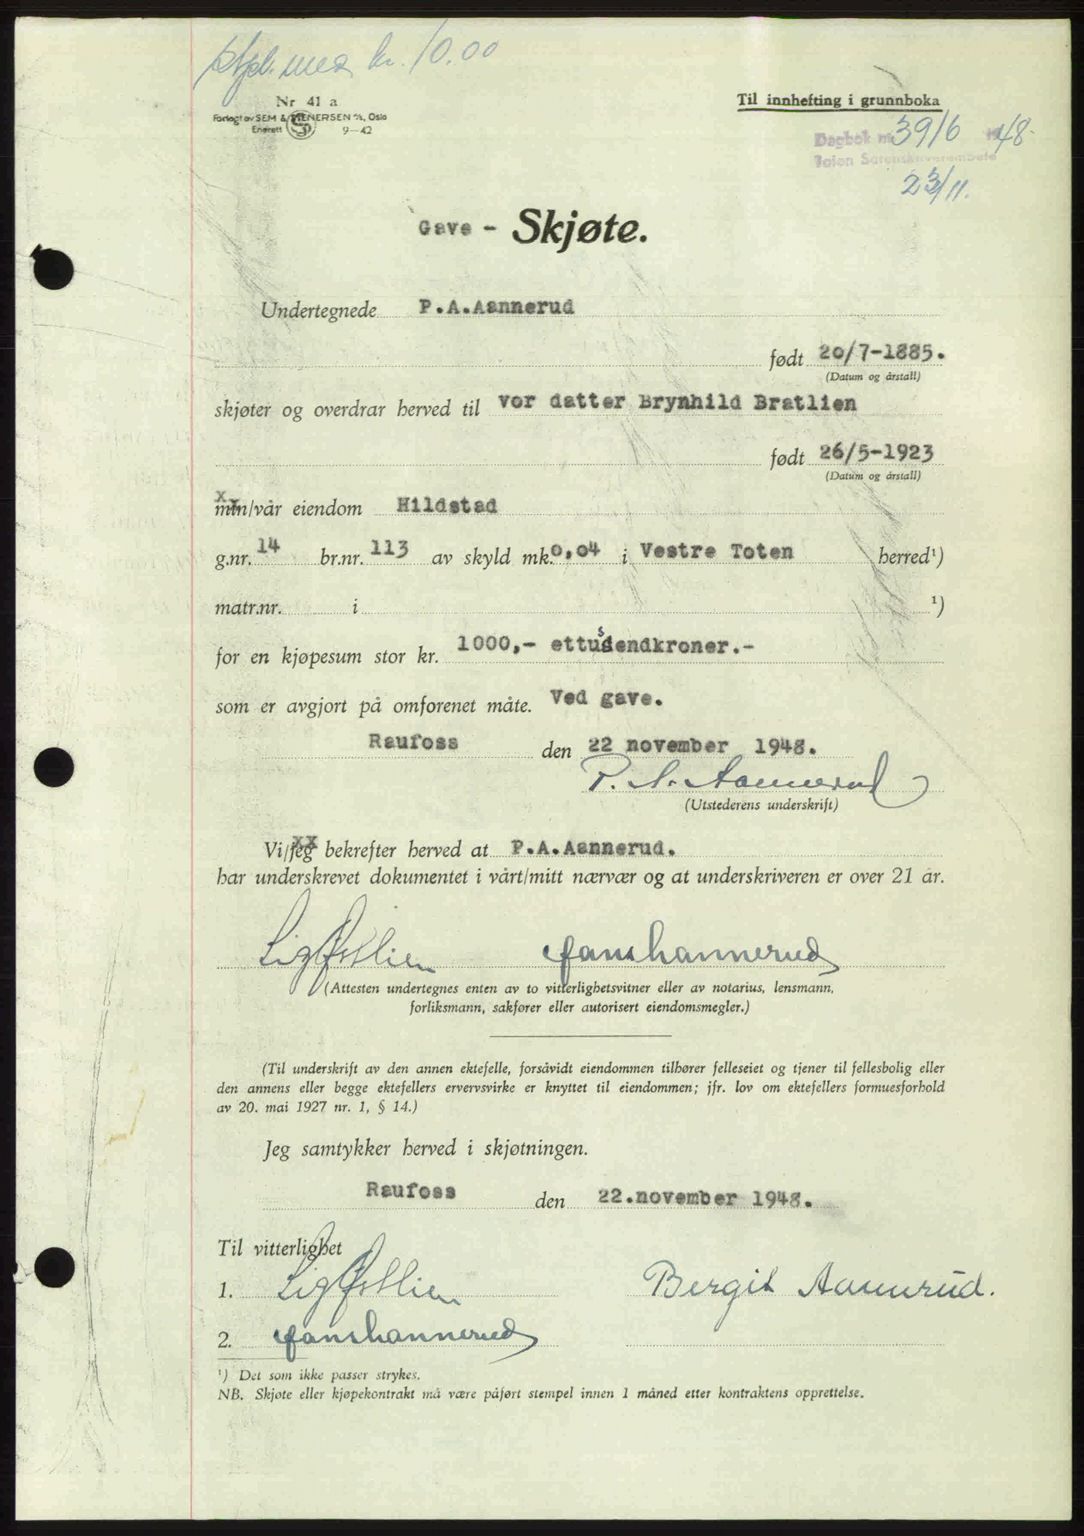 Stpl. med kr. 10.00
Nr 41 a
Forlagt av SEM & STENERSEN A/S, Oslo
Enerett 9-42
Til innhefting i grunnboka
Dagbok nr. 3916 1948.
Toten Sorenskriverembete
23/11.
Gave - Skjøte.
Undertegnede P.A.Aannerud
født 20/7-1885.
(Datum og årstall)
skjøter og overdrar herved til vor datter Brynhild Bratlien
født 26/5-1923
(Datum og årstall)
min/vår eiendom Hildstad
g.nr. 14 br.nr. 113 av skyld mk. 0,04 i Vestre Toten herred¹)
matr.nr. i ¹)
for en kjøpesum stor kr. 1000,- ettusendkroner.-
som er avgjort på omforenet måte. Ved gave.
Raufoss den 22 november 1948.
P. A. Aannerud
(Utstederens underskrift)
Vi/jeg bekrefter herved at P.A.Aannerud.
har underskrevet dokumentet i vårt/mitt nærvær og at underskriveren er over 21 år.
(Attesten undertegnes enten av to vitterlighetsvitner eller av notarius, lensmann,
forliksmann, sakfører eller autorisert eiendomsmegler.)
(Til underskrift av den annen ektefelle, forsåvidt eiendommen tilhører felleseiet og tjener til fellesbolig eller
den annens eller begge ektefellers ervervsvirke er knyttet til eiendommen; jfr. lov om ektefellers formuesforhold
av 20. mai 1927 nr. 1, § 14.)
Jeg samtykker herved i skjøtningen.
Raufoss den 22.november 1948.
Til vitterlighet
1. Bergit Aannerud.
2.
¹) Det som ikke passer strykes.
NB. Skjøte eller kjøpekontrakt må være påført stempel innen 1 måned etter kontraktens opprettelse.